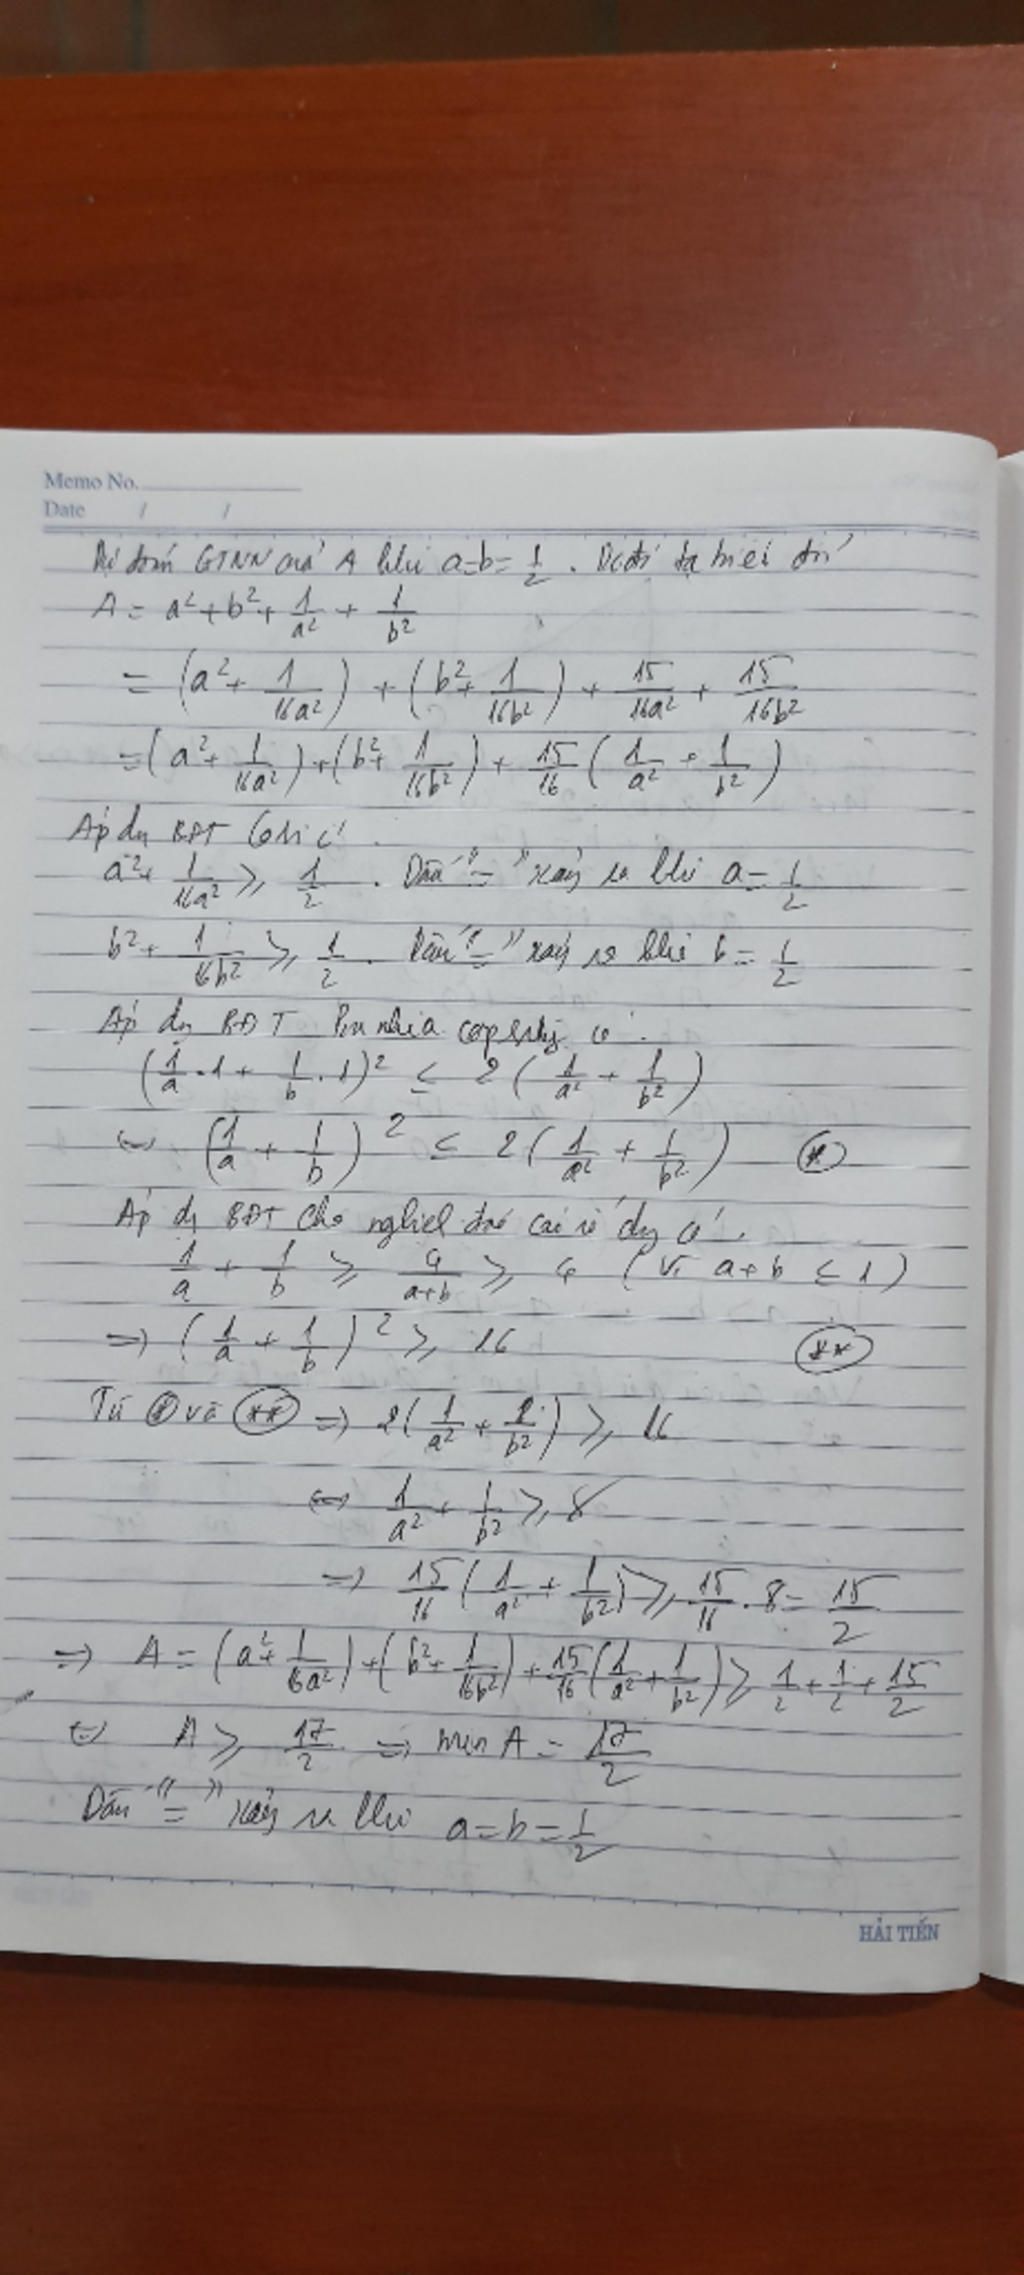 Memo No.
Date / /
Dự đoán GTNN của A khi a=b= 1/2. Do đó ta biến đổi
A = a² + b² + 1/a² + 1/b²
= (a² + 1/16a²) + (b² + 1/16b²) + 15/16a² + 15/16b²
= (a² + 1/16a²) + (b² + 1/16b²) + 15/16 (1/a² + 1/b²)
Áp dụ BĐT Cosi có
a² + 1/16a² ⩾ 1/2. Dấu "=" xảy ra khi a = 1/2
b² + 1/16b² ⩾ 1/2. Dấu "=" xảy ra khi b = 1/2
Áp dụ BĐT có:
(1/a . 1 + 1/b . 1)² ≤ 2 (1/a² + 1/b²)
⇔ (1/a + 1/b)² ≤ 2 (1/a² + 1/b²) (*)
Áp dụ BĐT có:
1/a + 1/b ⩾ 4/a+b ⩾ 4 (Vì a+b ≤ 1)
⇒ (1/a + 1/b)² ⩾ 16 (**)
Từ (*) và (**) ⇒ 2(1/a² + 1/b²) ⩾ 16
⇔ 1/a² + 1/b² ⩾ 8
⇒ 15/16 (1/a² + 1/b²) ⩾ 15/16 . 8 = 15/2
⇒ A = (a² + 1/16a²) + (b² + 1/16b²) + 15/16 (1/a² + 1/b²) ⩾ 1/2 + 1/2 + 15/2
⇔ A ⩾ 17/2 ⇒ min A = 17/2
Dấu "=" xảy ra khi a = b = 1/2
HẢI TIẾN